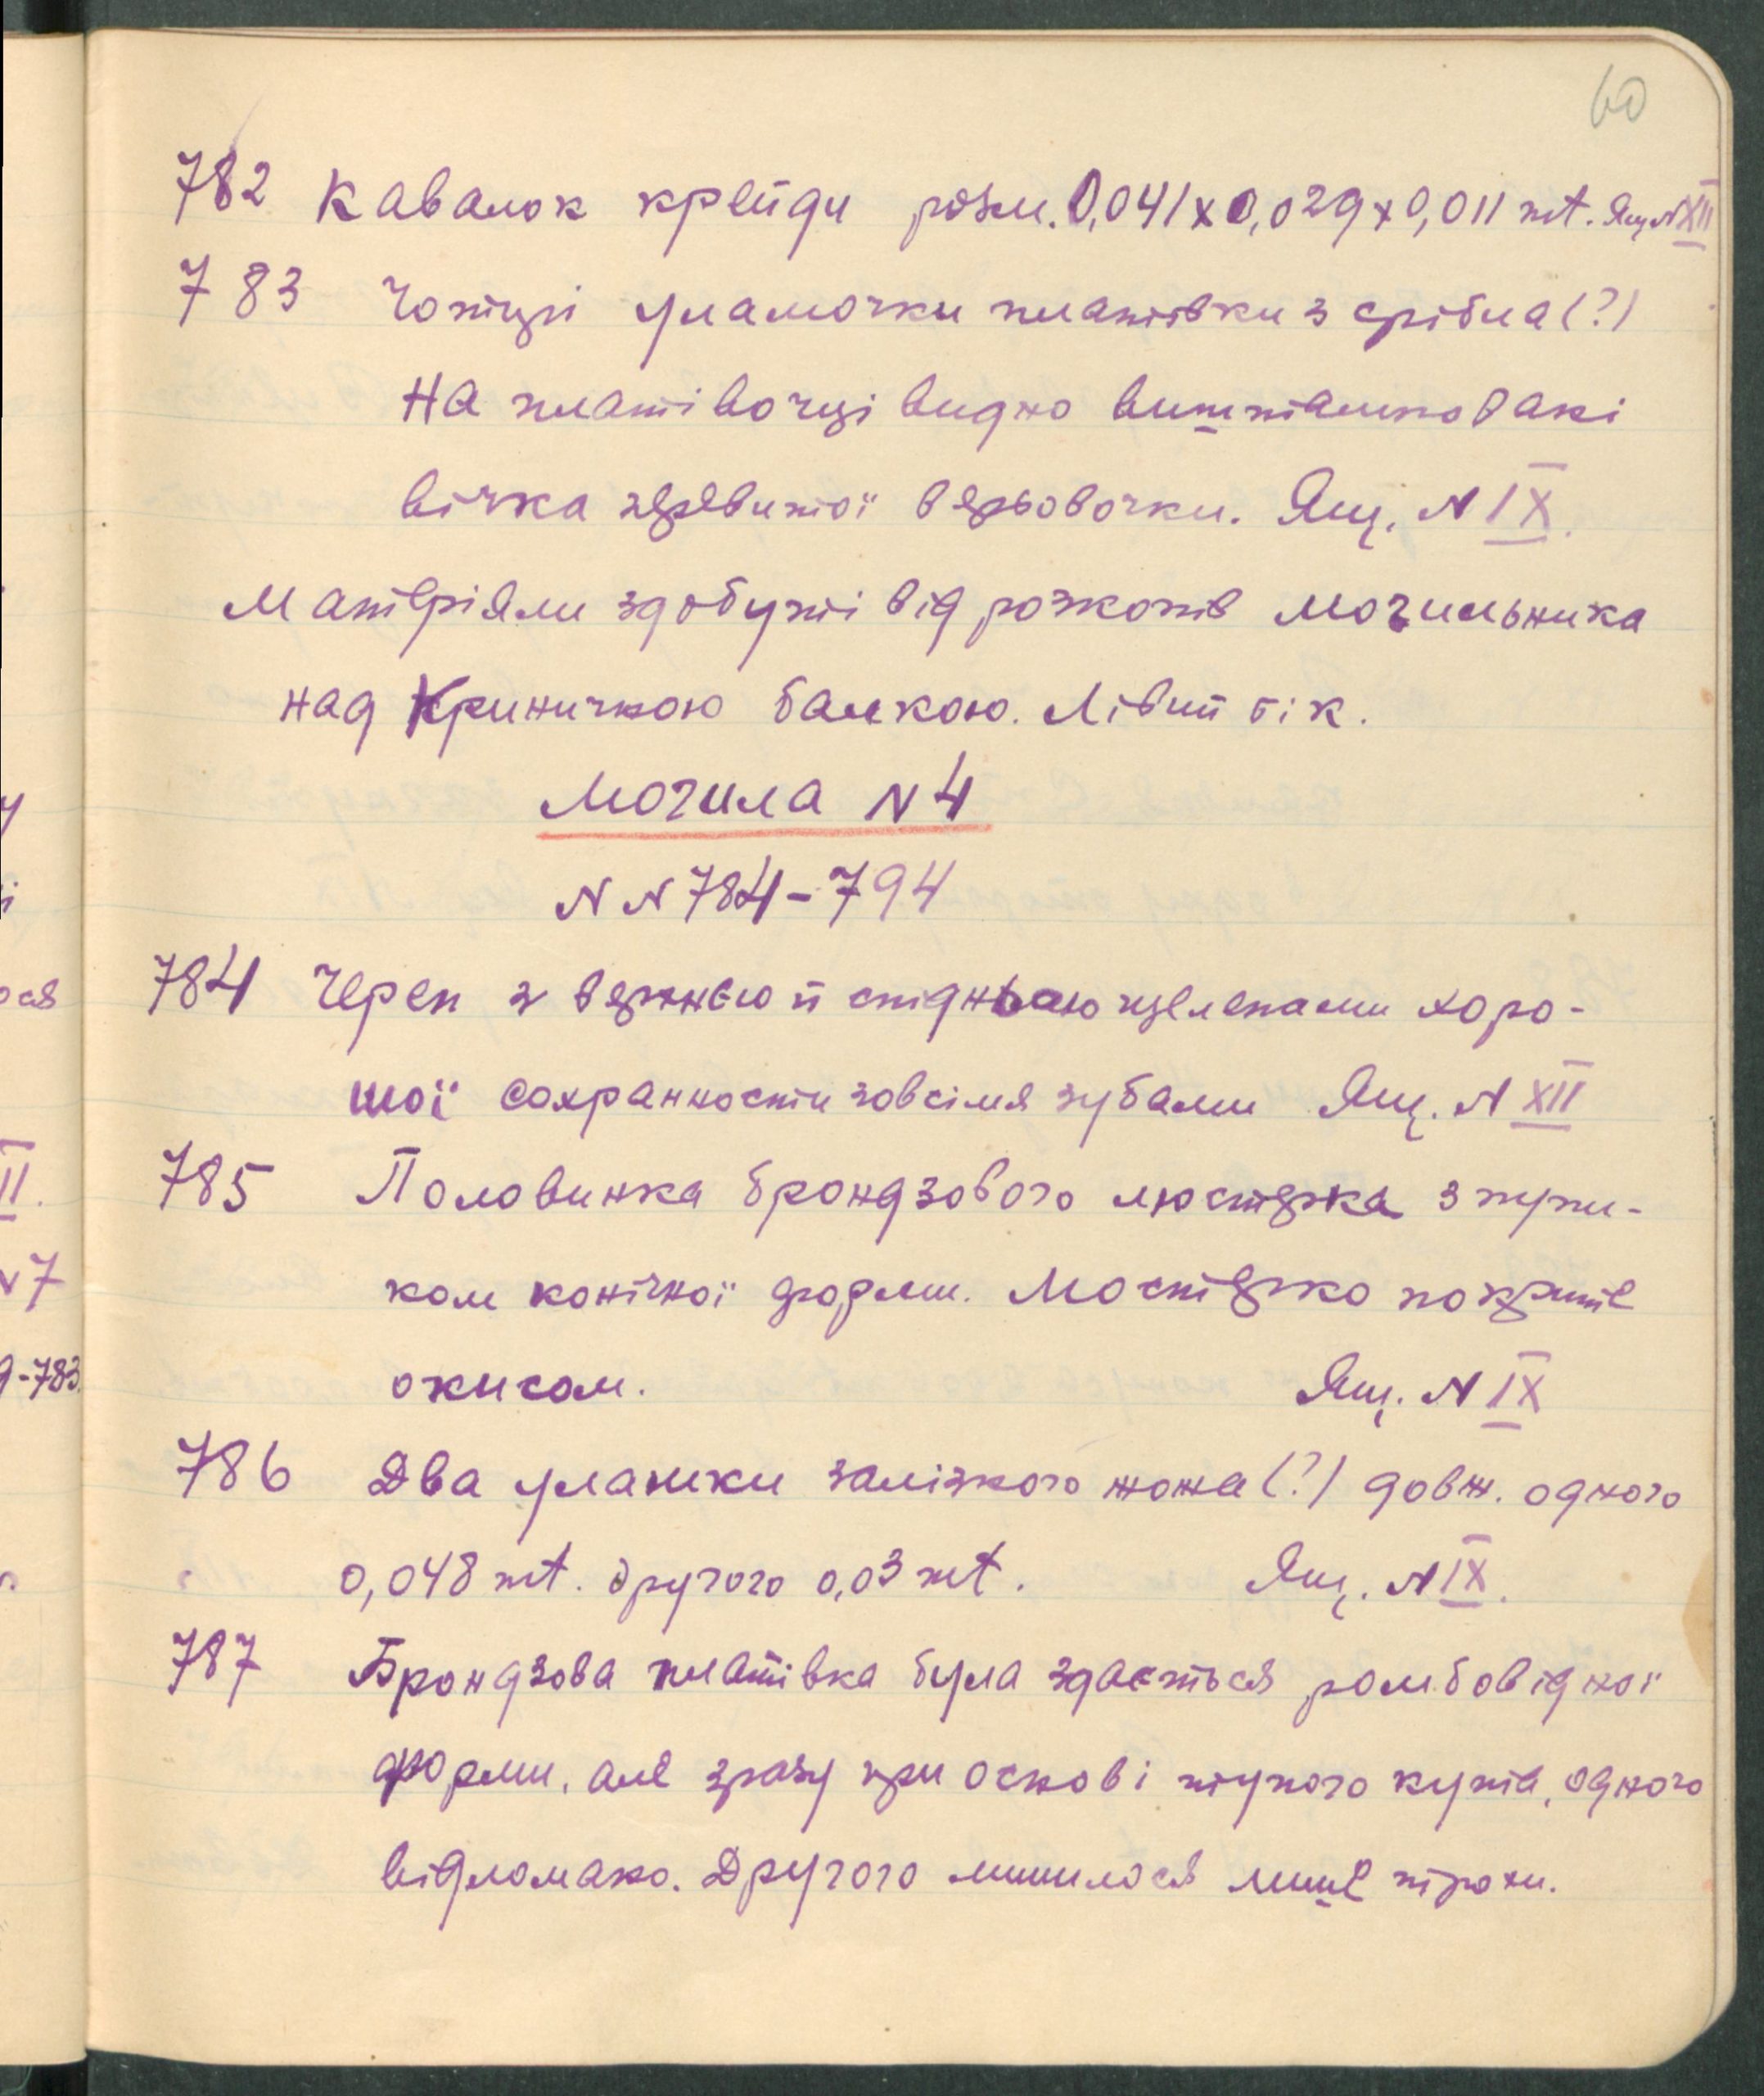 60
782 Кавалок крейди розм. 0,041x0,029x0,011 mt. Ящ. N XII
783 Чотирі уламочки платівки з срібла (?)
На платівочці видно виштамповані
вічка перевитої верьовочки. Ящ. N IX.
Матеріяли здобуті від розкопів могильника
над Криничкою балкою. Лівий бік.
Могила N 4
N N 784-794
784 Череп з верхнею й спідньою щелепами хоро-
шої сохранности зовсіма зубами Ящ. N XII
785 Половинка брондзового люстерка з пупи-
ком конічної форми. Люстерко покрите
окисом. Ящ. N IX
786 Два уламки залізного ножа (?) довж. одного
0,048 mt. другого 0,03 mt. Ящ. N IX.
787 Брондзова платівка була здається ромбовідної
форми, але зразу при основі тупого кута, одного
відломано. Другого лишилося лише трохи.